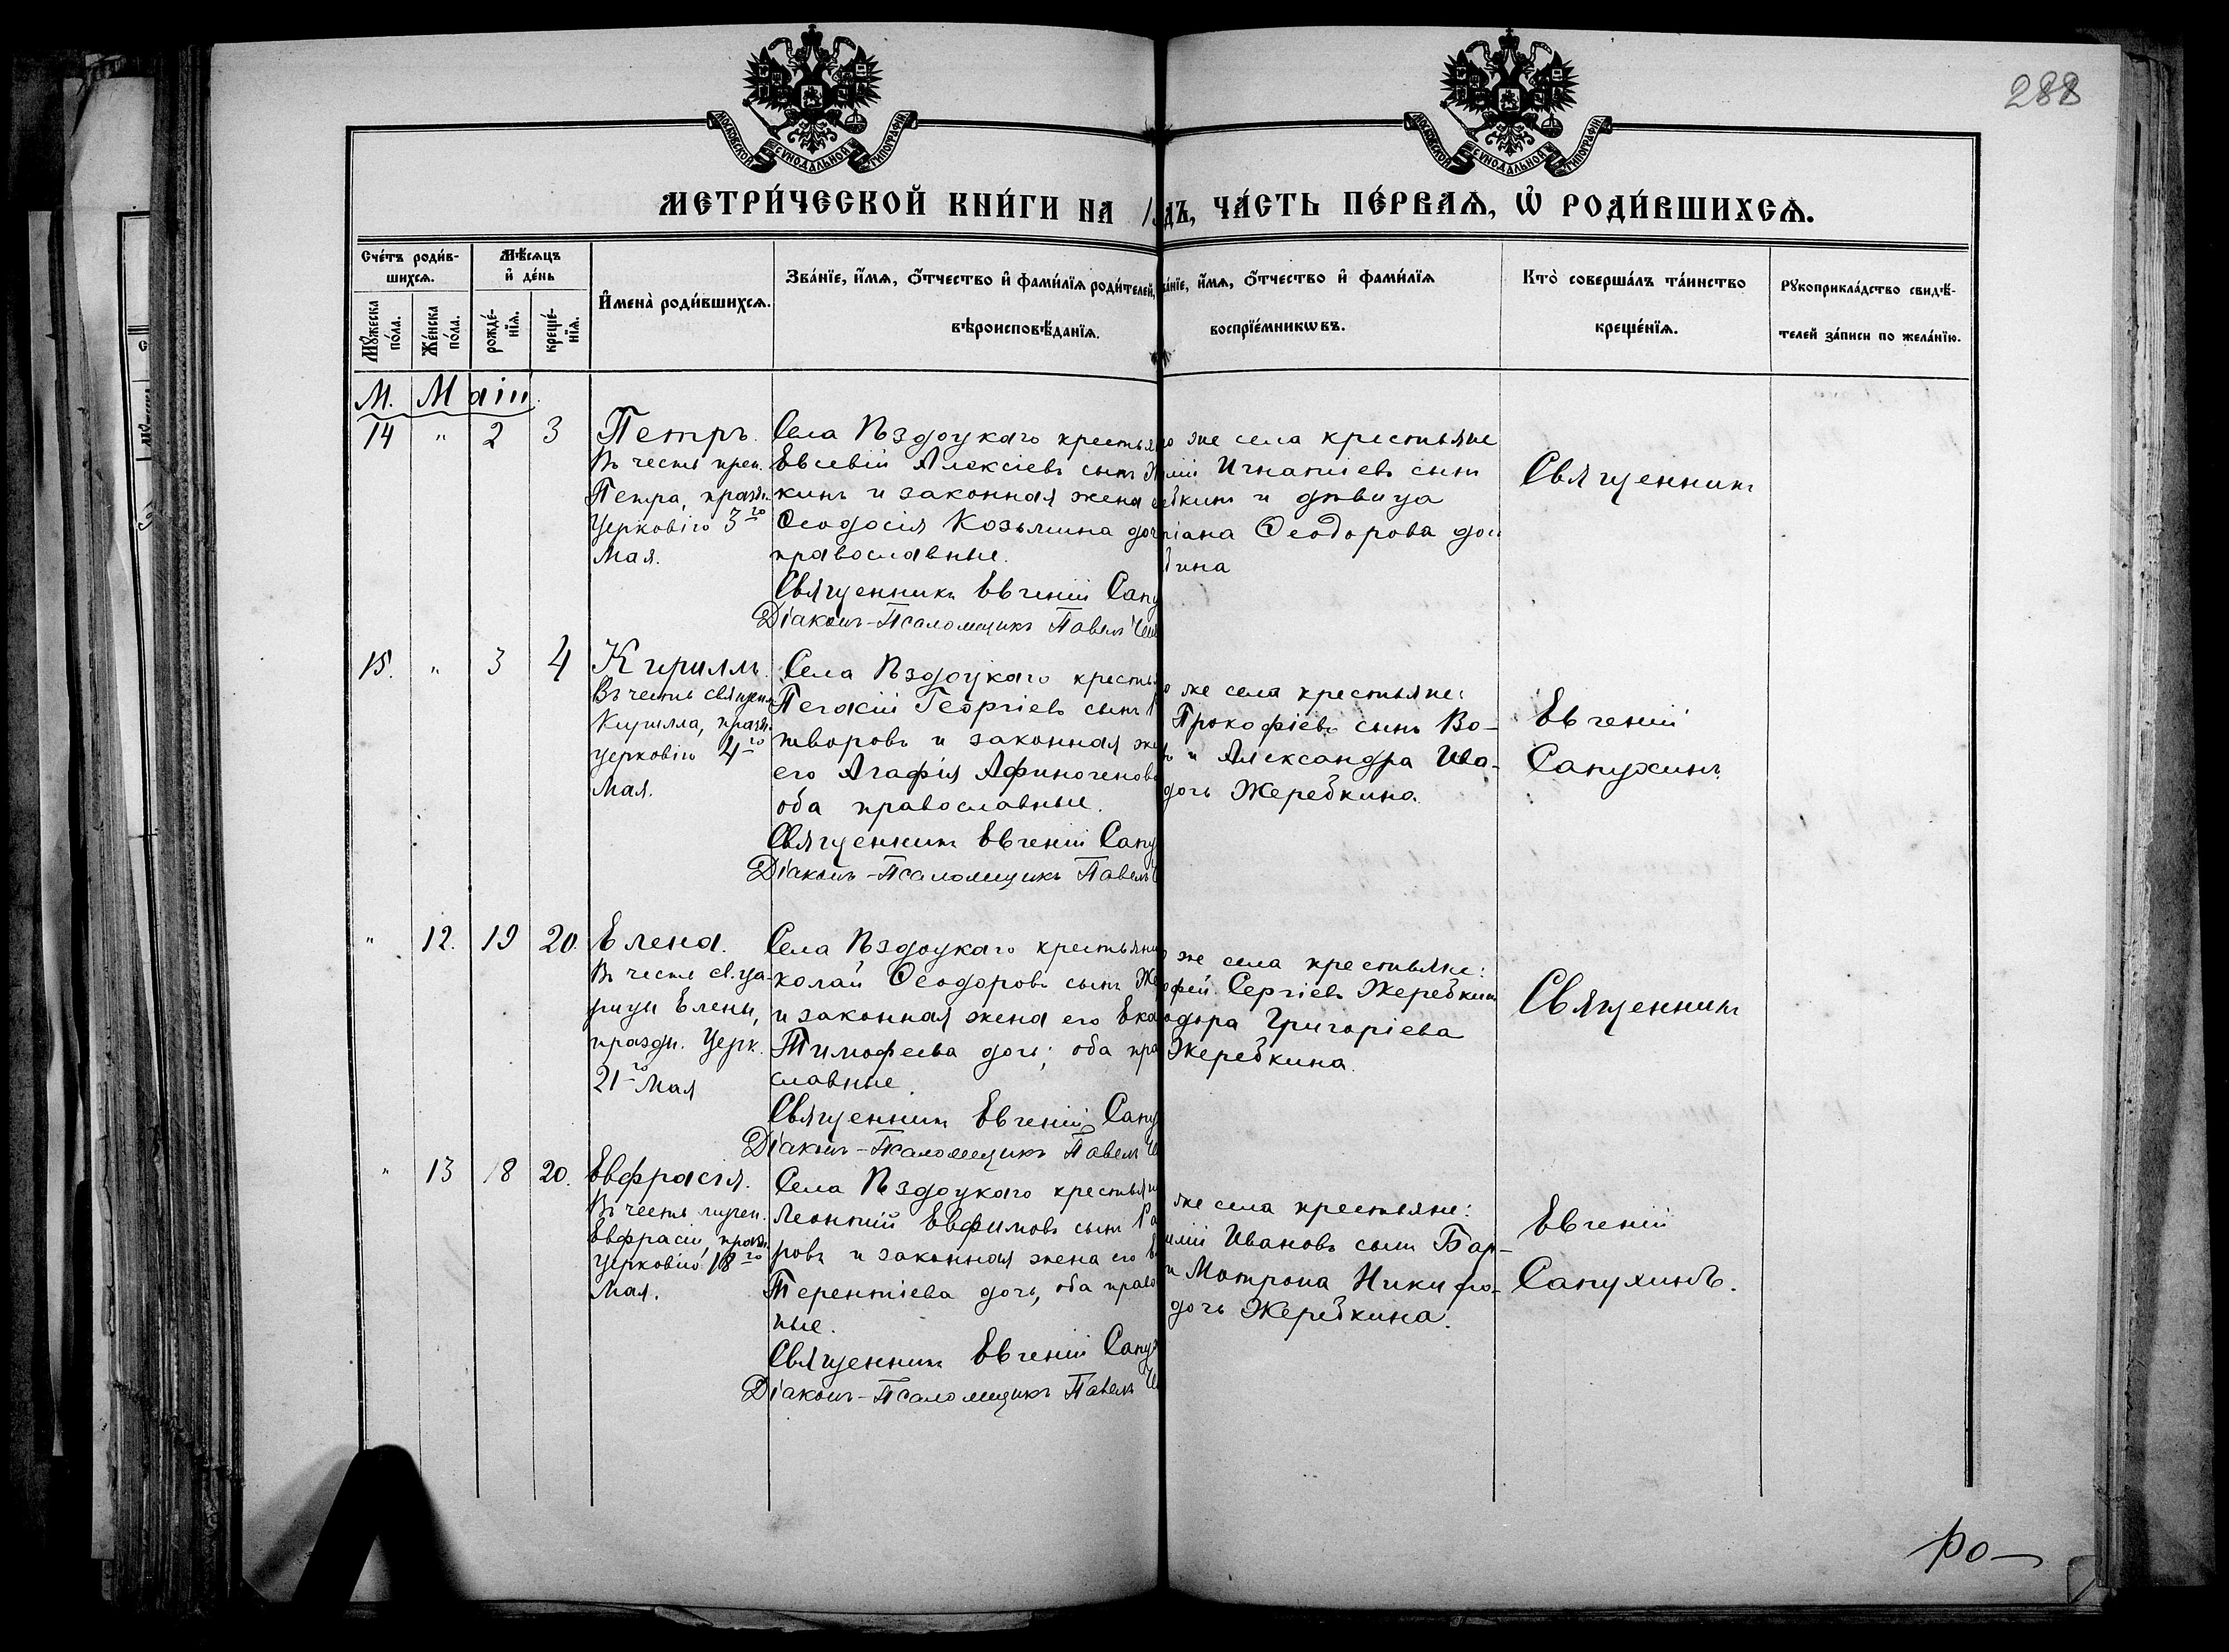 288
МОСКОВСКОЙ СѴНОДАЛЬНОЙ ТИПОГРАФІИ
МОСКОВСКОЙ СѴНОДАЛЬНОЙ ТИПОГРАФІИ
МЕТРИ́ЧЕСКОЙ КНИ́ГИ НА 1 дъ, ЧА́СТЬ ПЕ́РВАѦ, Ѡ҆ РОДИ́ВШИХСѦ.
Сче́тъ роди́в-
шихсѧ.
Мꙋ́жеска по́ла.
Же́нска по́ла.
Мѣ́сѧцъ
и҆ де́нь
рожде́-нїѧ.
креще́-нїѧ.
И҆мена̀ роди́вшихсѧ.
Зва́нїе, и҆́мѧ, ѻ҆́тчество и҆ фами́лїѧ роди́телей,
вѣроисповѣ́данїѧ.
а́нїе, и҆́мѧ, ѻ҆́тчество и҆ фами́лїѧ
воспрїе́мникѡвъ.
Кто̀ соверша́лъ та́инство
креще́нїѧ.
Рꙋкоприкла́дство свидѣ́-
телей за́писи по жела́нїю.
М. Маiи.
14 " 2 3
Петръ.
Въ честь преп.
Петра, празн.
Церковію 3го
Мая.
Села Пздоцкаго крестья
Евсевій Алексіевъ сынъ Ж
кинъ и законная жена
Ѳеодосія Козьмина доч
православные.
Священникъ Евгеній Сапу
Діаконъ-Псаломщикъ Павелъ
о же села крестьяне
илій Игнатіевъ сынъ
ебкинъ и дѣвица
ріана Ѳеодорова доч
бина
Священникъ
15. " 3 4
Кириллъ.
Въ честь священ.
Кирилла, празн.
церковію 4го
Мая.
Села Пздоцкаго кресть
Пегасій Георгіевъ сынъ
творовъ и законная же
его Агафія Афиногенов
оба православные.
Священникъ Евгеній Сапу
Діаконъ-Псаломщикъ Павелъ
о же села крестьяне:
Прокофіевъ сынъ Во-
ъ и Александра Ива-
дочь Жеребкина.
Евгеній
Сапухинъ.
" 12. 19 20.
Елена.
Въ честь св. ца-
рицы Елены,
праздн. Церк.
21го Мая
Села Пздоцкаго крестьяни
колай Ѳеодоровъ сынъ Же
и законная жена его Ека
Тимофеева дочь; оба пра
славные.
Священникъ Евгеній Сапу
Діаконъ-Псаломщикъ Павелъ
о же села крестьяне:
офей Сергіевъ Жеребкинъ
одора Григоріева
Жеребкина.
Священникъ
" 13 18 20.
Евфрасія.
Въ честь мучен.
Евфрасіи, празн.
Церковію 18го
Мая.
Села Пздоцкаго крестьян
Леонтій Евфимовъ сынъ
ровъ и законная жена его
Терентіева дочь, оба право
ные.
Священникъ Евгеній Сапух
Діаконъ-Псаломщикъ Павелъ
же села крестьяне:
илій Ивановъ сынъ Бар-
и Матрона Никифо-
дочь Жеребкина.
Евгеній
Сапухинъ.
ро—